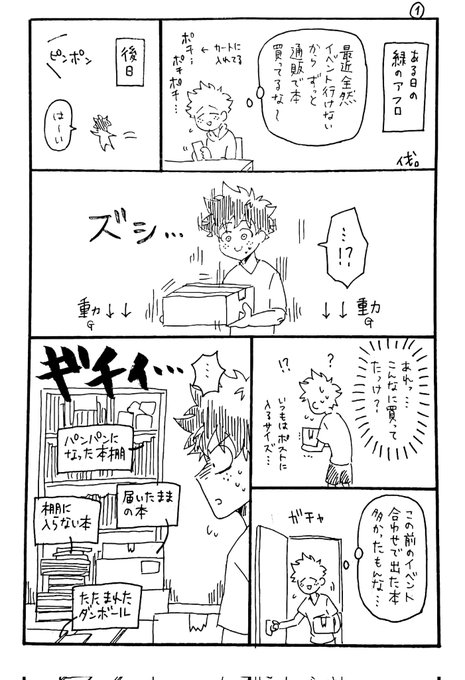 ①
ある日の
緑のアフロ
最近全然
イベント行けない
からずっと
通販で本
買ってるな～
← カートに
入れてる
ポチ…
ポチポチ…
ポチ…
伐。
後日
ピンポン
は～い
…!?
ズシ…
重力G↓↓
重力G↓↓
あれっ…
こんなに買って
たっけ?
?
!?
いつもはポストに
入るサイズ…
この前のイベント
合わせで出た本
多かったもんな…
ガチャ
…
ギチィ…
パンパンに
なった本棚
届いたまま
の本
棚に
入らない本
たたまれた
ダンボール